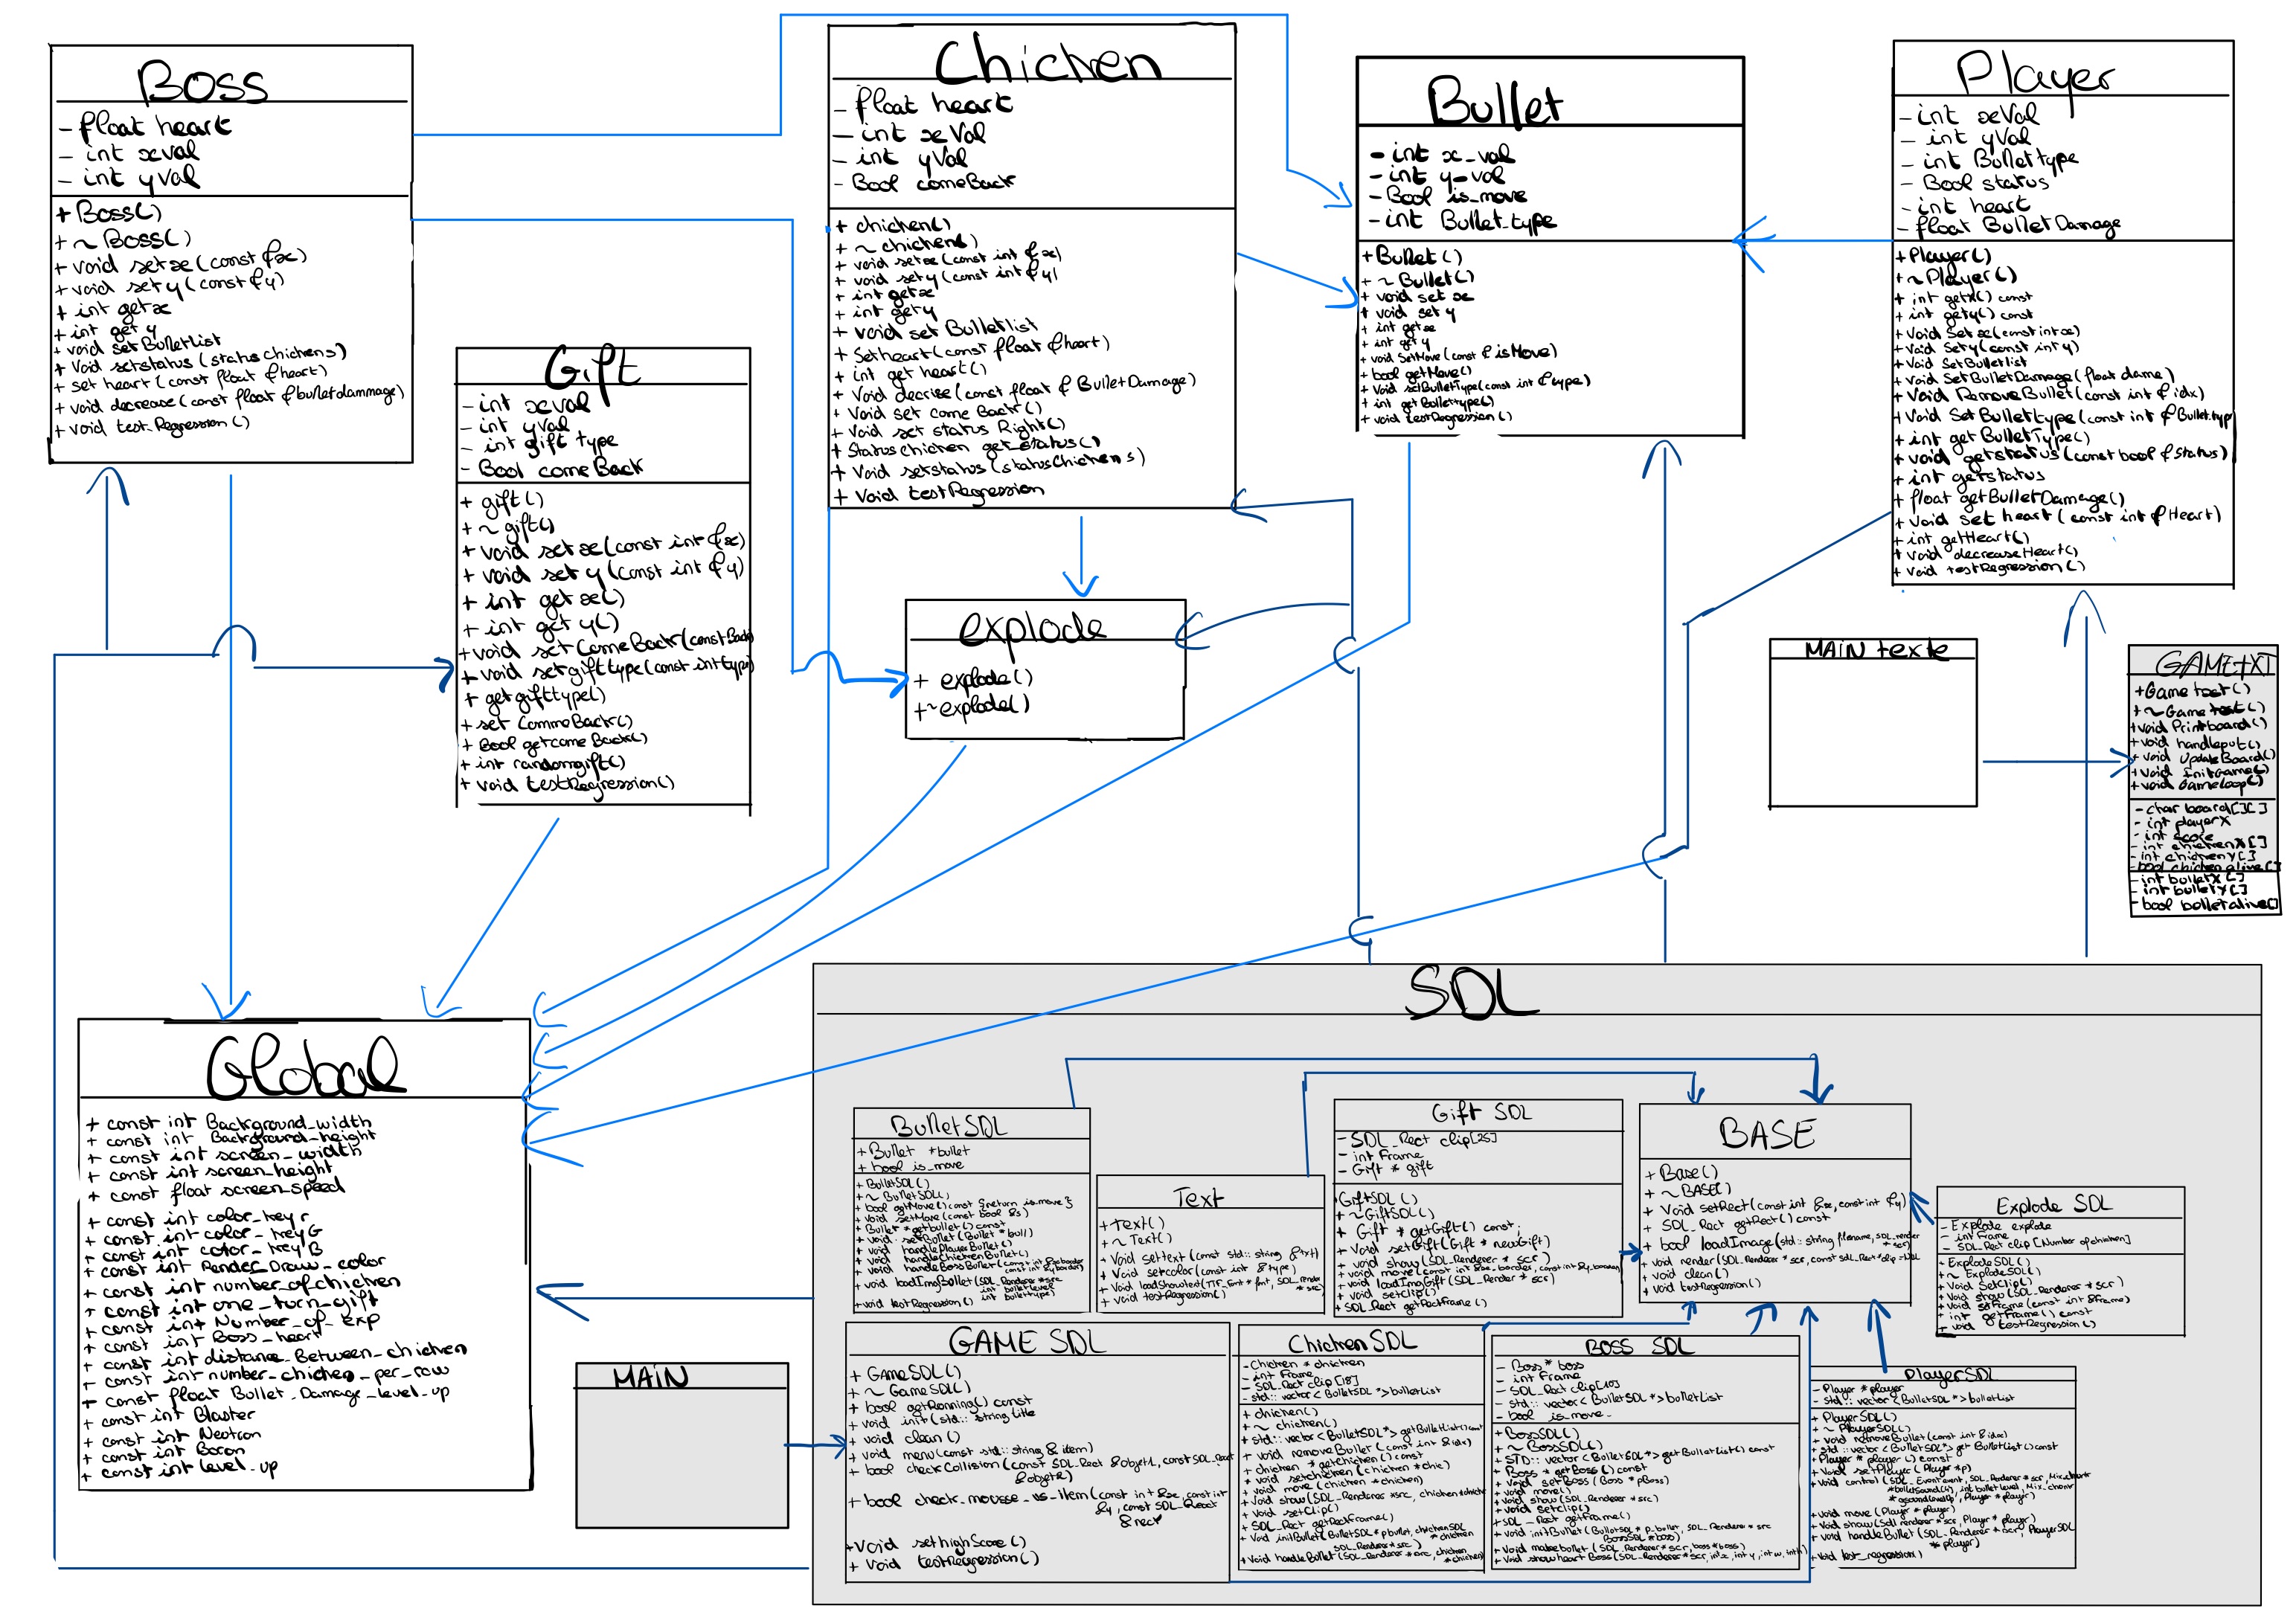 Boss
- float heart
- int xval
- int yval
+ Boss()
+ ~ Boss()
+ void setx (const &x)
+ void sety (const &y)
+ int getx
+ int get y
+ void setBulletlist
+ Void setstatus (status chickens)
+ set heart (const float &heart)
+ void decrease (const float &bulletdammage)
+ void test Regression ()
Chicken
- float heart
- int xVal
- int yVal
- Bool comeBack
+ chicken()
+ ~ chicken()
+ void setx (const int &x)
+ void sety (const int &y)
+ int getx
+ int get y
+ void set Bulletlist
+ Setheart (const float &heart)
+ int get heart()
+ Void decrise (const float & BulletDamage)
+ Void set come Back()
+ Void set status Right()
+ Status chicken get_status()
+ Void setstatus (status Chickens)
+ Void testRegression
Bullet
- int x_val
- int y_val
- Bool is_move
- int Bullet_type
+ Bullet ()
+ ~ Bullet()
+ void set x
+ void set y
+ int getx
+ int get y
+ void SetMove (const & isMove)
+ bool getMove()
+ Void setBulletType (const int & type)
+ int getBullettype()
+ void testRegression()
Player
- int xVal
- int yVal
- int Bullettype
- Bool status
- int heart
- float BulletDamage
+ Player()
+ ~ Player()
+ int getx() const
+ int gety() const
+ Void Setx (const int x)
+ Void Sety (const int y)
+ Void SetBulletlist
+ Void SetBulletDamage (float dame)
+ Void RemoveBullet (const int & idx)
+ Void SetBullettype (const int & Bullet.type
+ int get BulletType()
+ void getstatus (const bool & Status)
+ int getstatus
+ float getBulletDamage()
+ Void set heart (const int & Heart)
+ int getHeart()
+ Void decreaseHeart()
+ Void testRegression()
Gift
- int xval
- int yval
- int gift type
- Bool comeBack
+ gift()
+ ~ gift()
+ void setx (const int &x)
+ void set y (const int &y)
+ int get x()
+ int get y()
+ void set ComeBack (const Back)
+ void setgifttype (const int type)
+ getgifttype()
+ set CommeBack()
+ Bool getcome Back()
+ int randomgift()
+ void testRegression()
explode
+ explode()
+ ~explode()
MAIN texte
GAMEtXT
+ Game text()
+ ~ Game text()
+ void Printboard()
+ void handleput()
+ void UpdateBoard()
+ void InitGame()
+ void GameLoop()
- char board[][]
- int playerX
- int score
- int chickenX[]
- int chickenY[]
- bool chicken alive[]
- int bulletX[]
- int bulletY[]
- bool bulletalive[]
Global
+ const int Background_width
+ const int Background_height
+ const int screen_width
+ const int screen_height
+ const float screen_speed
+ const int color_key r
+ const int color_keyG
+ const int color_keyB
+ const int Render_Draw_color
+ const int number_of chicken
+ const int one_turn_gift
+ const int Number_of_exp
+ const int Boss_heart
+ const int distance_Between_chicken
+ const int number_chicken_per_row
+ const float Bullet_Damage_level_up
+ const int Blaster
+ const int Neutron
+ const int Boron
+ const int level_up
SDL
BulletSDL
+ Bullet *bullet
+ bool is_move
+ BulletSDL()
+ ~ BulletSDL()
+ bool getMove() const {return is_move}
+ void setMove (const bool &s)
+ Bullet * getbullet() const
+ void setBullet (Bullet * bull)
+ void handlePlayerBullet()
+ void handleChickenBullet()
+ void handleBossBullet (const int & xborder
const int & yborder)
+ void loadImgBullet (SDL_Renderer *scr
int bulletlevel
int bullettype)
+ void testRegression()
Text
+ Text()
+ ~ Text()
+ Void settext (const std:: string & txt)
+ Void setcolor (const int & type)
+ Void loadShowtext (TTF_Font * fnt, SDL_render
* scr)
+ void testRegression()
Gift SDL
- SDL_Rect clip[25]
- int Frame
- Gift * gift
GiftSDL()
+ ~GiftSDL()
+ Gift * getGift() const;
+ Void setGift (Gift * newGift)
+ void show (SDL_Renderer * scr)
+ void move (const int &x_border, const int &y_border)
+ void loadImgGift (SDL_Render * scr)
+ void setclip()
+ SDL_Rect getRectFrame()
BASE
+ Base()
+ ~ BASE()
+ Void setRect (const int &x, const int &y)
+ SDL_Rect getRect() const
+ bool loadImage (std:: string filename, SDL_render
* scr)
+ void render (SDL_Renderer * scr, const SDL_Rect *clip = NULL
+ void clean()
+ void testRegression()
Explode SDL
- Explode explode
- int Frame
- SDL_Rect clip [Number of chicken]
+ ExplodeSDL()
+ ~ ExplodeSDL()
+ Void SetClip()
+ Void show (SDL_Renderer * scr)
+ Void setFrame (const int &frame)
+ int getFrame() const
+ void testRegression()
MAIN
GAME SDL
+ GAMeSDL()
+ ~ GameSDL()
+ bool getRonning() const
+ void init (std:: string title
+ void clean ()
+ void menu (const std:: string & item)
+ bool checkCollision (const SDL_Rect &objet1, const SDL_Rect
&objet2)
+ bool check_mousse_vs_item (const int &x, const int
&y, const SDL_Rect
&rect
+ Void sethighScore ()
+ Void testRegression()
Chicken SDL
- Chicken * chicken
- int Frame
- SDL_Rect clip [18]
- std:: vector <BulletSDL *> bulletList
+ chicken()
+ ~ chicken()
+ std:: vector <BulletSDL*> getBulletList() const
+ void removeBullet (const int & idx)
+ chicken * getchicken() const
+ void setchicken (chicken * chic)
+ void move (chicken * chicken)
+ Void show (SDL_Renderer *scr, chicken *chicken
+ void setClip()
+ SDL_Rect getRectFrame()
+ Void initBullet (BulletSDL * pbullet, chickenSDL
* chicken
SDL_Renderer * scr)
+ Void handleBullet (SDL_Renderer * src, chicken
* chicken)
BOSS SDL
- Boss* boss
- int Frame
- SDL_Rect clip[10]
- std:: vector <BulletSDL *> bulletList
- bool is_move
+ BossSDL()
+ ~ BossSDL()
+ STD:: vector <BulletSDL*> getBulletList() const
+ Boss * getBoss() const
+ Void setBoss (Boss * pBoss)
+ void move()
+ void show (SDL_Renderer * scr)
+ void setclip()
+ SDL_Rect getFrame()
+ Void initBullet (BulletSDL * p_bullet, SDL_Renderer * src
bossSDL *boss)
+ Void makebullet (SDL_Renderer * scr, boss *boss)
+ Void showheart Boss (SDL_Renderer *scr, int x, int y, int w, int h)
PlayerSDL
- Player * player
- std:: vector <BulletSDL *> bulletList
+ PlayerSDL()
+ ~ PlayerSDL()
+ void removeBullet (const int & idx)
+ std :: vector <BulletSDL*> get BulletList() const
+ Player * player() const
+ Void setPlayer (Player * p)
+ Void control (SDL_Event event, SDL_Renderer * scr, Mix_chunk
*bulletSound[4], int bulletLevel, Mix_chunk
* gsoundlevelUp, Player * player)
+ Void move (Player * player)
+ Void show (Sdl renderer * scr, Player * player)
+ void handleBullet (SDL_Renderer * scr, PlayerSDL
* player)
+ Void test_regression()